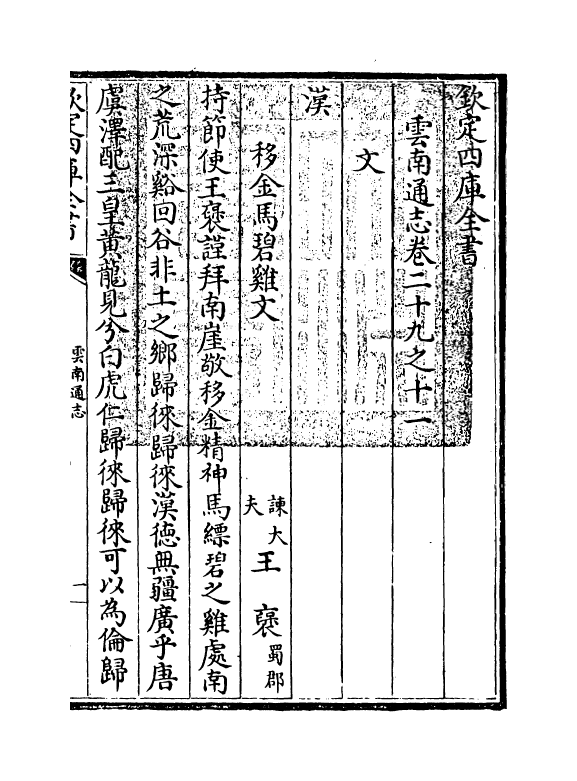 欽定四庫全書
雲南通志卷二十九之十一
文
漢
移金馬碧雞文 諫大夫王襃蜀郡
持節使王襃謹拜南崖敬移金精神馬縹碧之雞處南
之荒深谿回谷非土之鄉歸徠歸徠漢德無疆廣乎唐
虞澤配三皇黃龍見兮白虎仁歸徠歸徠可以為倫歸
欽定四庫全書
雲南通志
一